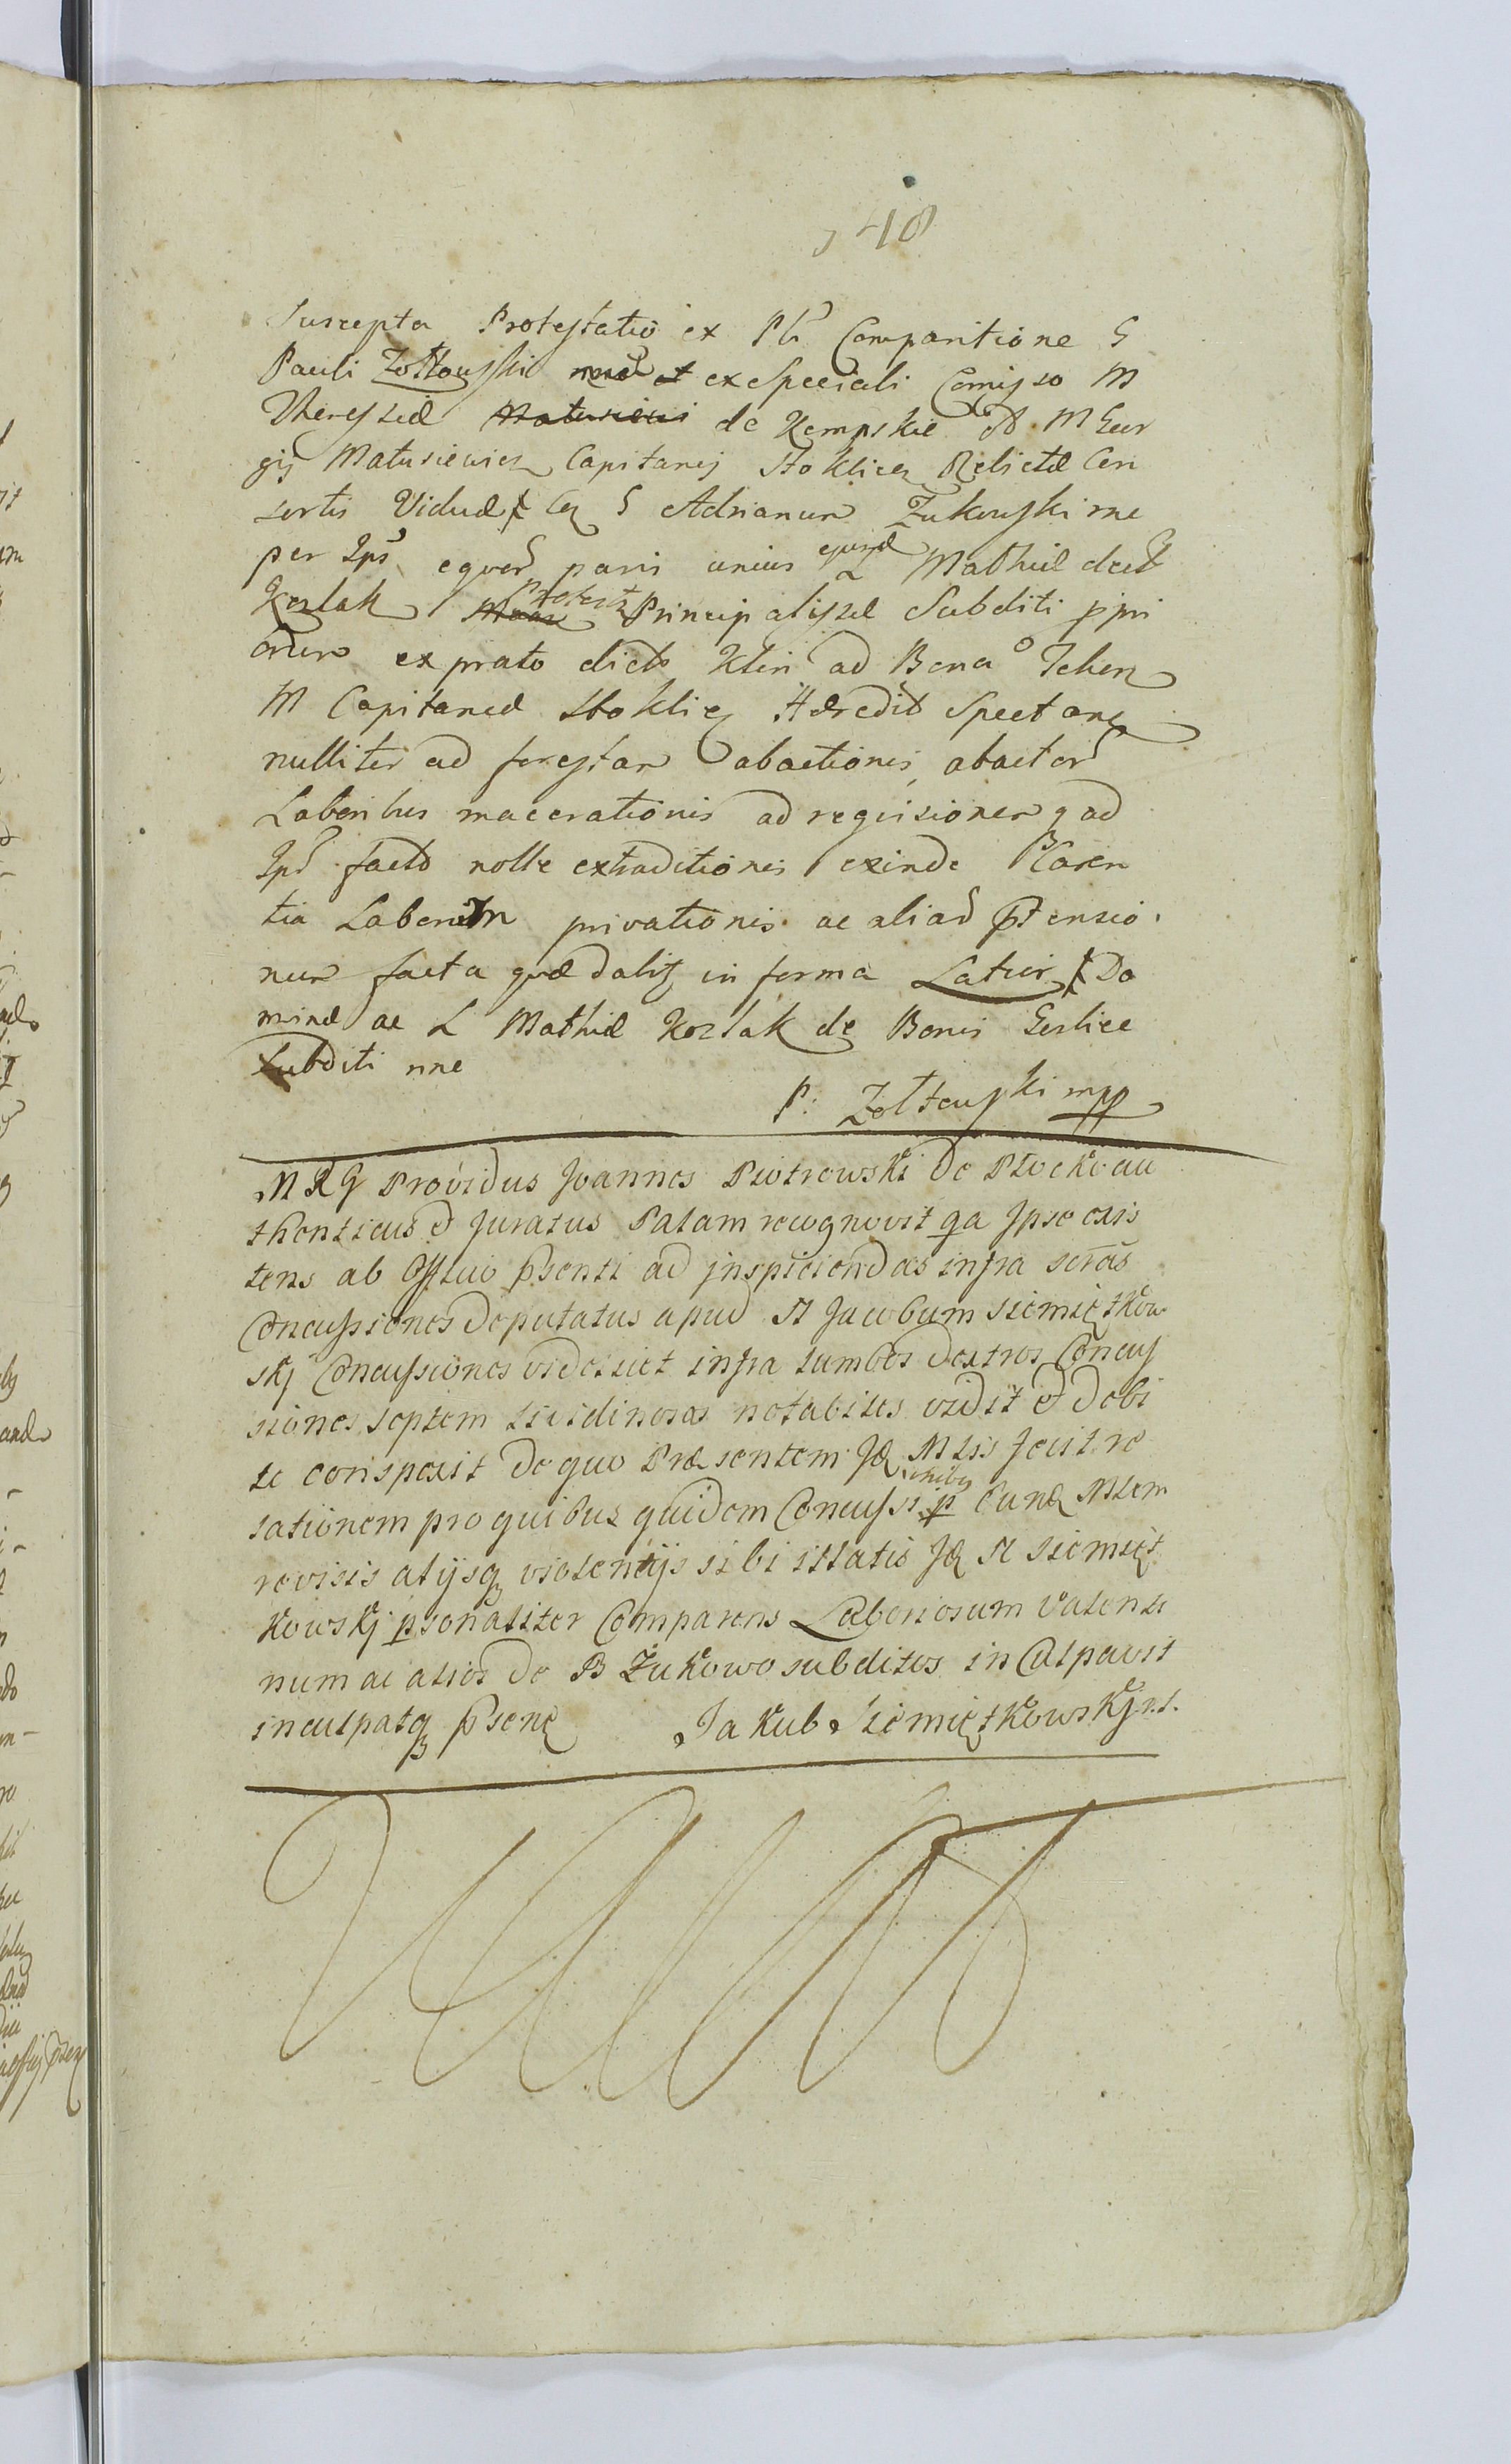 48
Suscepta Protestatio ex Pli Comparitione G
Pauli Zołtowski et ex Speciali Comisso M
Theressiæ Matusievi de Kempskie M Geor
gij Matusiewicz Capitanej Stoklicz Relictæ Con
sortis Viduæ Cq G Adrianum Żukowski ne
per Ips equor paris unius ejusd L Mathiæ dict
Kozlak Protestt Principalissæ Subditi ppri
orum ex prato dicto Klin ad Bona Tchen
M Capitaneæ Stoklicz Hæredit Spectanq
nulliter ad forestam abactionis abactor
Laboribus macerationis ad requisitionem qad
Ips facto nolle extraditionis exinde Caren
tia Laborum privationis ac aliad Ptensio
num facta quæ dabitz in forma Latiori Do
minæ ac L Mathiæ Kozlak de Bonis Gorlice
Subditi nne
P: Zołtowski mpp
MRG Providus Joannes Piotrowski de Płocko au
thenticus et Juratus Palam recognovit qa Ipse exis
tens ab Offcio pssenti ad inspiciendas infra scras
Concussiones Deputatus apud N Jacobum Siemiętkow
skj Concussiones videlicet infra lumbos dextros Concus
siones septem lividinosas notabiles vidit et debi
te conspexit de quo Præsentem Jd Mtris fecit re
lationem pro quibus quidem Concussionibus p eund Mtrem
revisis alijsq violentijs sibi illatis Jd N Siemięt
kowskj psonaliter Comparens Laboriosum Valenti
num ac alios de B Żukowo subditos inculpavit
inculpatq pssenq Jakub Siemiętkowskj